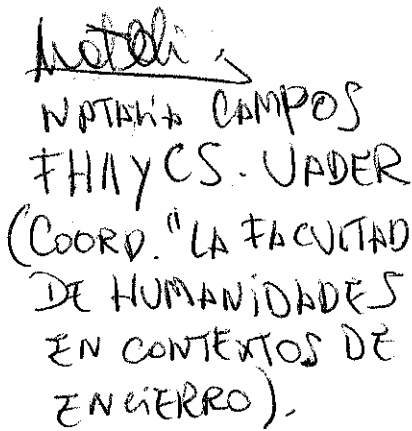 NATALIA CAMPOS
FHAYCS. UADER
(COORD. "LA FACULTAD
DE HUMANIDADES
EN CONTEXTOS DE
ENCIERRO).